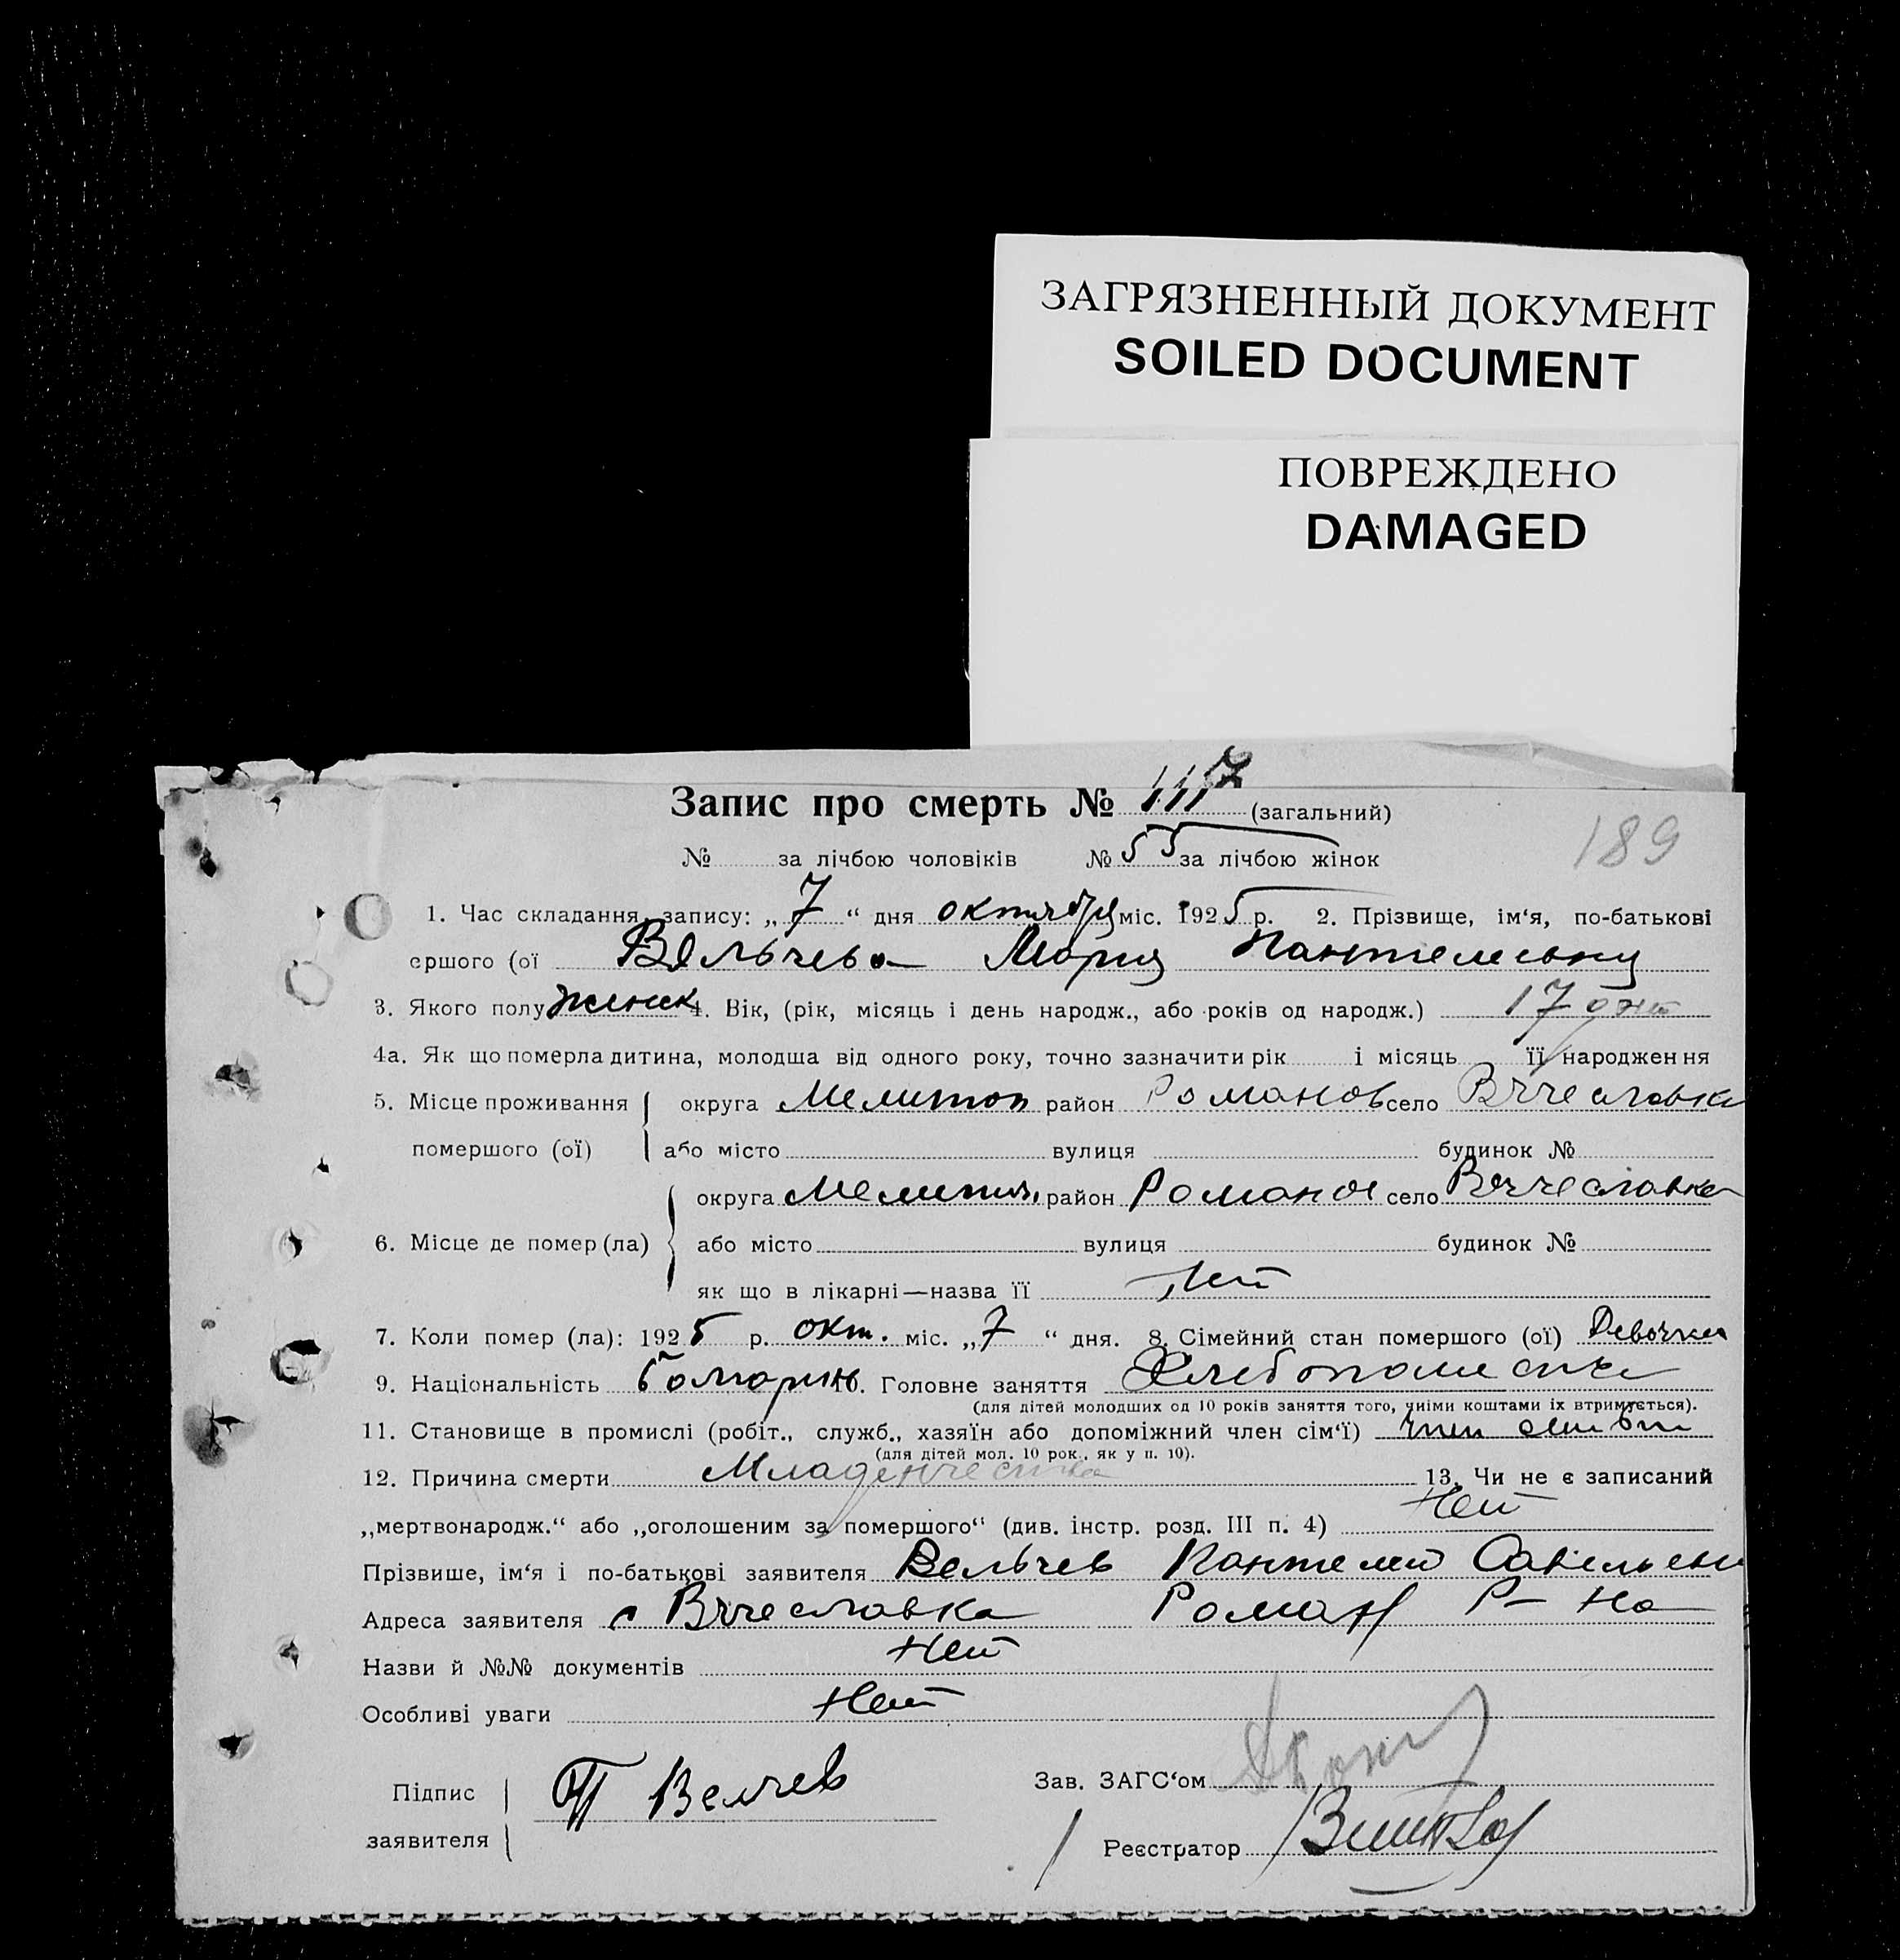 ЗАГРЯЗНЕННЫЙ ДОКУМЕНТ
SOILED DOCUMENT
ПОВРЕЖДЕНО
DAMAGED
Запис про смерть № 117 (загальний)
189
№ за лічбою чоловіків № 55 за лічбою жінок
1. Час складання запису: „7“ дня октября міс. 1925 р. 2. Прізвище, ім‘я, по-батькові
ершого (ої Вельчева Мария Пантелеевна
3. Якого полу женск 4. Вік, (рік, місяць і день народж., або років од народж.) 17 дней
4а. Як що померла дитина, молодша від одного року, точно зазначити рік і місяць її народження
5. Місце проживання округа Мелитоп район Романов село Вячеславка
помершого (ої) або місто вулиця будинок №
округа Мелитоп, район Романов село Вячеславка
6. Місце де помер (ла) або місто вулиця будинок №
як що в лікарні—назва її Нет
7. Коли помер (ла): 1925 р. окт. міс. „7“ дня. 8. Сімейний стан помершого (ої) Девочка
9. Національність болгарин 10. Головне заняття Хлебопашество
(для дітей молодших од 10 років заняття того, чиїми коштами їх втримується).
11. Становище в промислі (робіт., служб., хазяїн або допоміжний член сім‘ї) член семьи
(для дітей мол. 10 рок., як у п. 10).
12. Причина смерти Младенческая 13. Чи не є записаний
„мертвонародж.“ або „оголошеним за помершого“ (див. інстр. розд. III п. 4) Нет
Прізвише, ім‘я і по-батькові заявителя Вельчев Пантелей Савельеви
Адреса заявителя с Вячеславка Роман Р-на
Назви й №№ документів Нет
Особливі уваги Нет
Підпис заявителя П Велчев
Зав. ЗАГС‘ом
Реєстратор